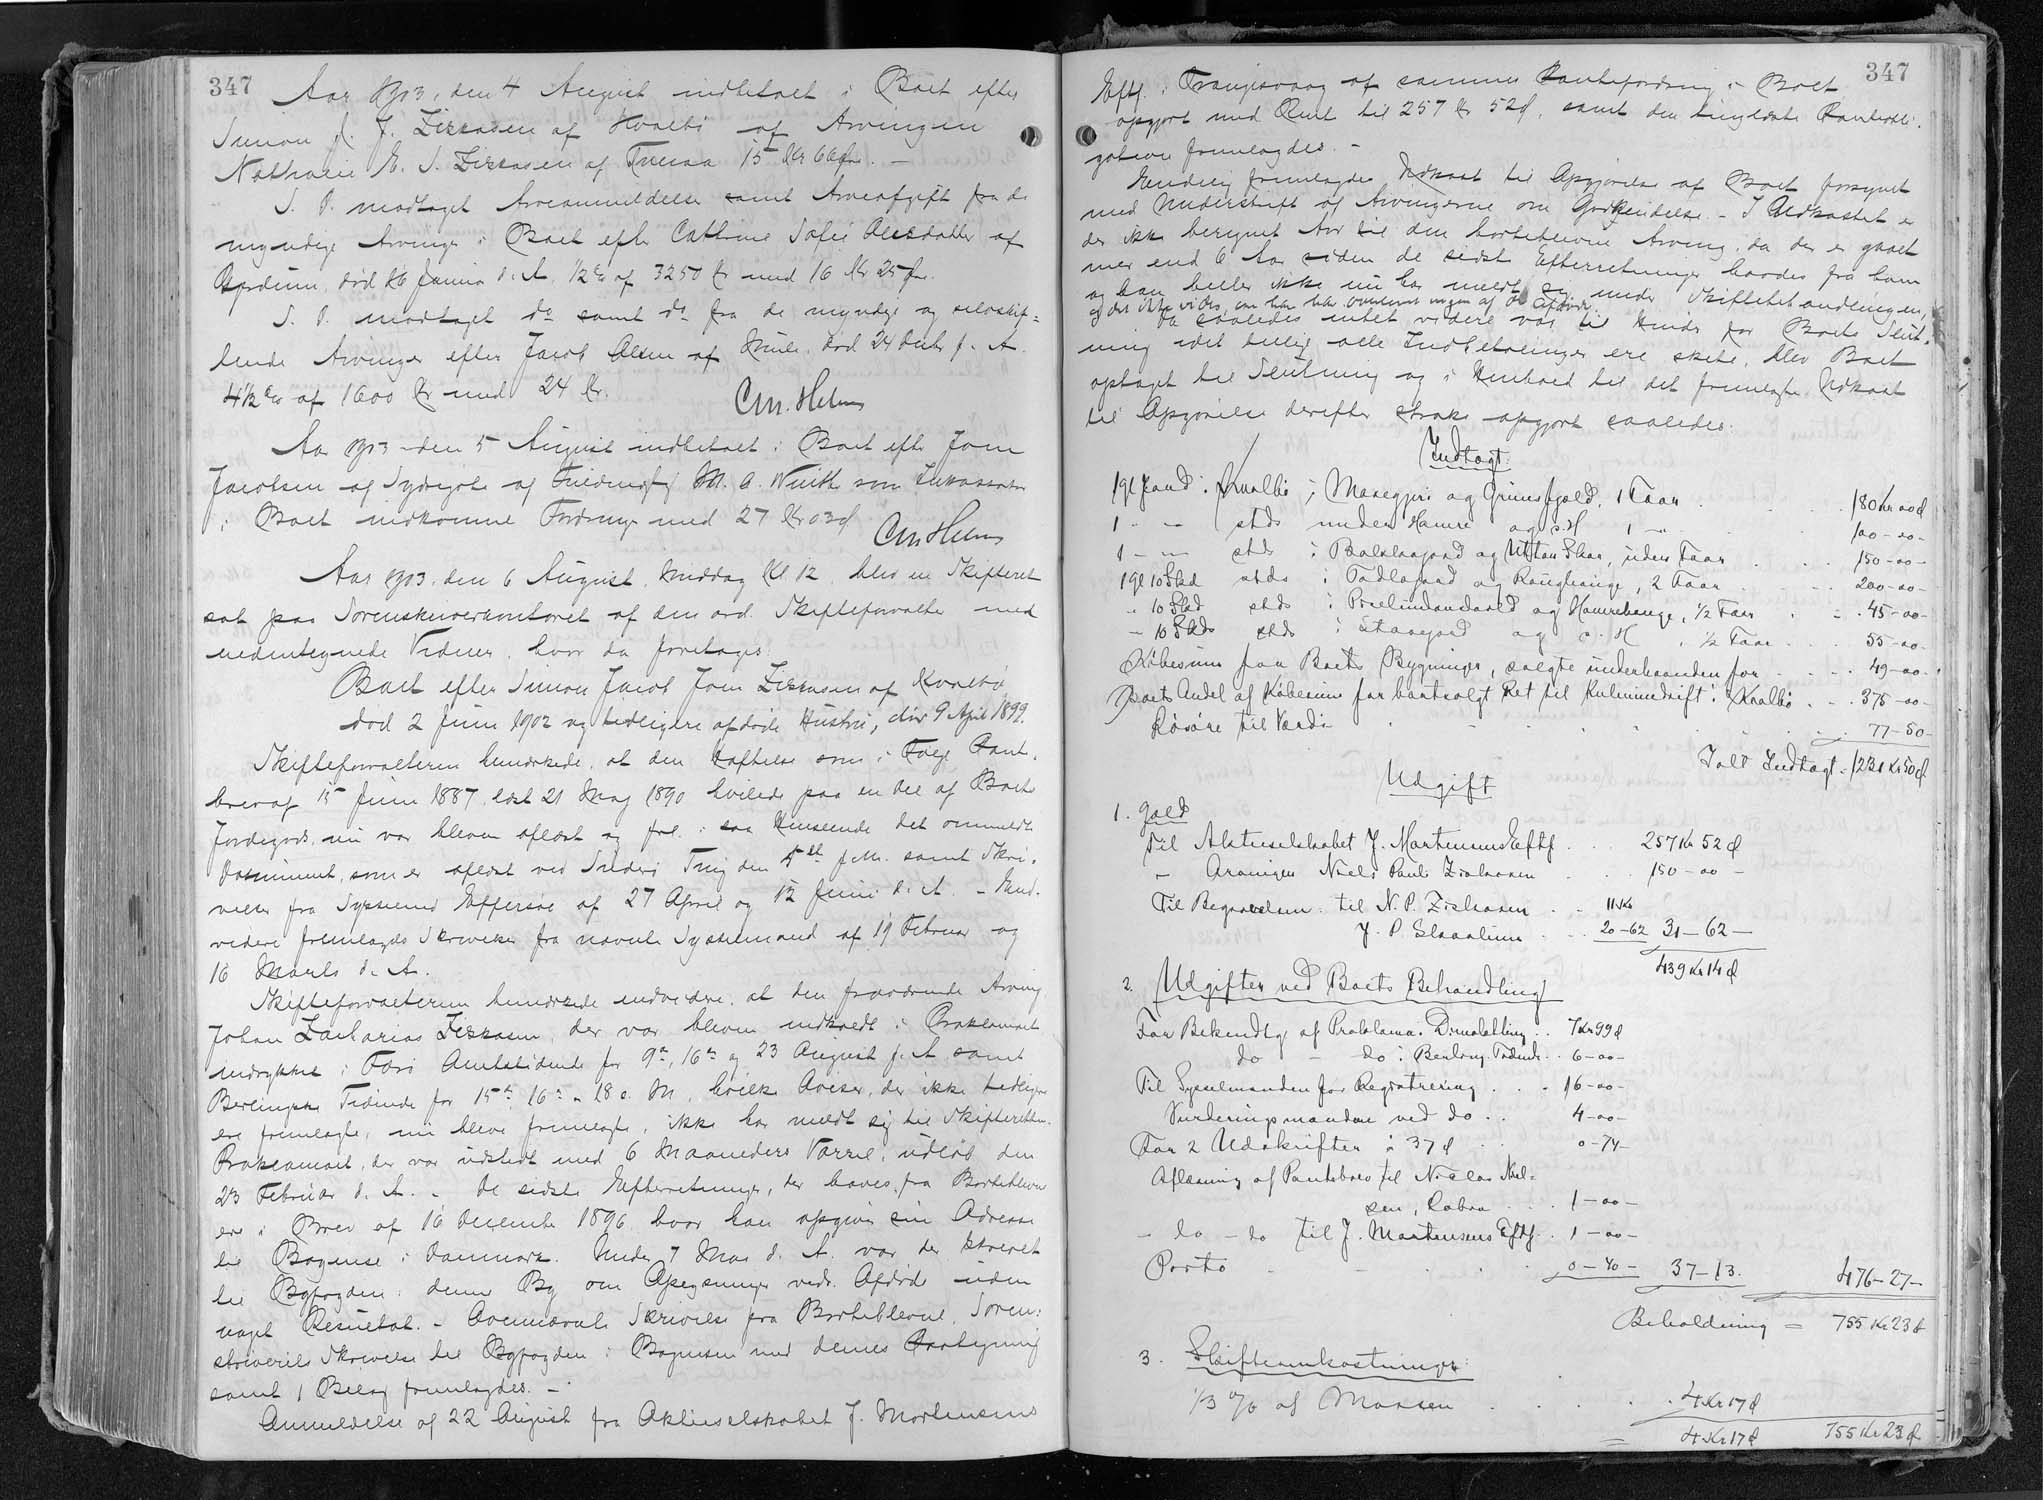 347
Aar 1903, den 4 August indbetalt i Boet efter
Simon J. J. Zirrasen af Hvalbö af Arvingen
Nathanie E. S. Zirrasen af 15 Kr 66 Øre. -
S. D. modtaget Arveanmeldelse samt Arveafgift fra de
myndige Arvinger i Boet efter Cathrine Sofie Olesdatter af
død 26 Januar d. A. 1/2 % af 3250 Kr med 16 Kr 25 Øre.
S. D. modtaget do samt do fra de myndige og selvskif=
tende Arvinger efter Jacob Olsen af død 24 Decbr f. A.
4 1/2 % af 1600 Kr med 24 Kr.
C.M. Helms
Aar 1903 den 5 August indbetalt i Boet efter Joen
Jacobsen af Sydregöte af M. A. Winth som Inkassator
i Boet indkomne Fordringer med 27 Kr 03 Ø
C.M. Helms
Aar 1903, den 6 August Middag Kl. 12 blev en Skifteret
sat paa Sorenskriverkontoret af den ord. Skifteforvalter med
undertegnede Vidner, hvor da foretages:
Boet efter Simon Jacob Joen Zirrasen af Kvalbö,
død 2 Juni 1902 og tidligere afdøde Hustru, død 9 April 1899.
Skifteforvalteren bemærkede, at den Hæftelse som i Følge Pant.
brev af 15 Juni 1887, læst 21 Maj 1890 hvilede paa en Del af Boets
Jordegods, nu var bleven aflæst og frl. i saa Henseende det ommeldte
Dokument, som er aflæst ved Suderö Ting den f. M. samt Skri-
velser fra Sysselmd Effersöe af 27 April og 12 Juni d. A. - End-
videre fremlagdes Skrivelser fra nævnte Sysselmand af 19 Februar og
16 Marts d. A.
Skifteforvalteren bemærkede endvidere, at den fraværende Arving
Johan Zacharias Zirrasen, der var bleven indkaldt i Proklamaet
indrykket i Færö Amtstidende for 9de, 16de og 23 August f. A. samt
Berlingske Tidende for 15de, 16de - 18 s. M., hvilke Aviser, der ikke tidligere
ere fremlagte, nu bleve fremlagte, ikke har meldt sig til Skifteretten.
Proklamaet, der var udstedt med 6 Maaneders Varsel, udløb den
23 Februar d. A. - De sidste Efterretninger, der haves fra Bortblevne
ere i Brev af 16 December 1896, hvor han opgiver sin Adresse
til Bogense i Danmark. Under 7 Mai d. A. var der skrevet
til Byfogden i denne By om Oplysninger vedr. Afdøde uden
noget Resultat. - Ovennævnte Skrivelse fra Bortblevne, Soren=
skriveriets Skrivelse til Byfogden i Bogense med dennes Paategning
samt 1 Bilag fremlagdes. -
Anmeldelse af 22 August fra Aktieselskabet J. Mortensens
347
Eftf. i Trangisvaag af sammes Pantefordring i Boet
opgjort med Rente til 257 Kr 52 Ø, samt den tinglæste Panteobli-
gation fremlagdes. -
Endelig fremlagdes Udkast til Opgjörelse af Boet forsynet
med Underskrift af Arvingerne om Godkjendelse. - I Udkastet er
der ikke beregnet Arv til den bortblevne Arving, da der er gaaet
mer end 6 Aar siden de sidste Efterretninger havdes fra ham
og han heller ikke nu har meldt sig under Skiftebehandlingen,
og det ikke vides, om han har
Da saaledes intet videre var til Hinder for Boets Slut-
ning idet tillige alle Indbetalinger ere skete, blev Boet
optaget til Slutning og i Henhold til det fremlagte Udkast
til Opgjörelse derefter straks opgjort saaledes:
Indtægt.
1 Gl Jord i Kvalbö, i Maregjerde og Grimsfjeld, 1 Faar . . . 180 Kr 00 Ø
1 - - stds under Hamre og s. H 1 - . . 100 - 00 -
1 - - stds i og uden Faar . . . 150 - 00 -
1 Gl 10 Skd stds i og 2 Faar . . . 200 - 00 -
- 10 Skd stds i og 1/2 Faar . . . 45 - 00 -
- 10 Skd stds i og s. H , 1/2 Faar . . . 55 - 00 -
Købesum for Boets Bygninger, solgte underhaanden for . . . 49 - 00 -
Boets Andel af Købesum for bortsolgt Ret til Kulminedrift i Kvalbö . . . 375 - 00 -
Løsøre til Værdi . . . 77 - 50 -
Ialt Indtægt = 1231 Kr 50 Ø
Udgift
1. Gæld
Til Aktieselskabet J. Mortensens Eftf . . . 257 Kr 52 Ø
- Arvingen Niels Paul Ziskasen . . . 150 - 00 -
Til Begravelsen: til N. P. Ziskasen . . 11 Kr
J. P. Slaalien . . . 20 - 62 31 - 62 -
439 Kr 14 Ø
2. Udgifter ved Boets Behandling
For Bekendtg. af Proklama i Dimalætting . . 7 Kr 99 Ø
do - do i Berling. Tidende . . 6 - 00 -
Til Sysselmanden for Registrering . . . 16 - 00 -
Vurderingsmændene ved do . . 4 - 00 -
For 2 Udskrifter à 37 Ø . . 0 - 74 -
Aflæsning af Pantebrev til Niclas Niel=
sen, . . . 1 - 00 -
- do - do til J. Mortensens Eftf. . 1 - 00 -
Porto . . . 0 - 40 - 37 - 13. 476 - 27 -
Beholdning = 755 Kr 23 Ø
3. Skifteomkostninger:
1/3 % af Massen . . . 4 Kr 17 Ø
= 4 Kr 17 Ø 755 Kr 23 Ø